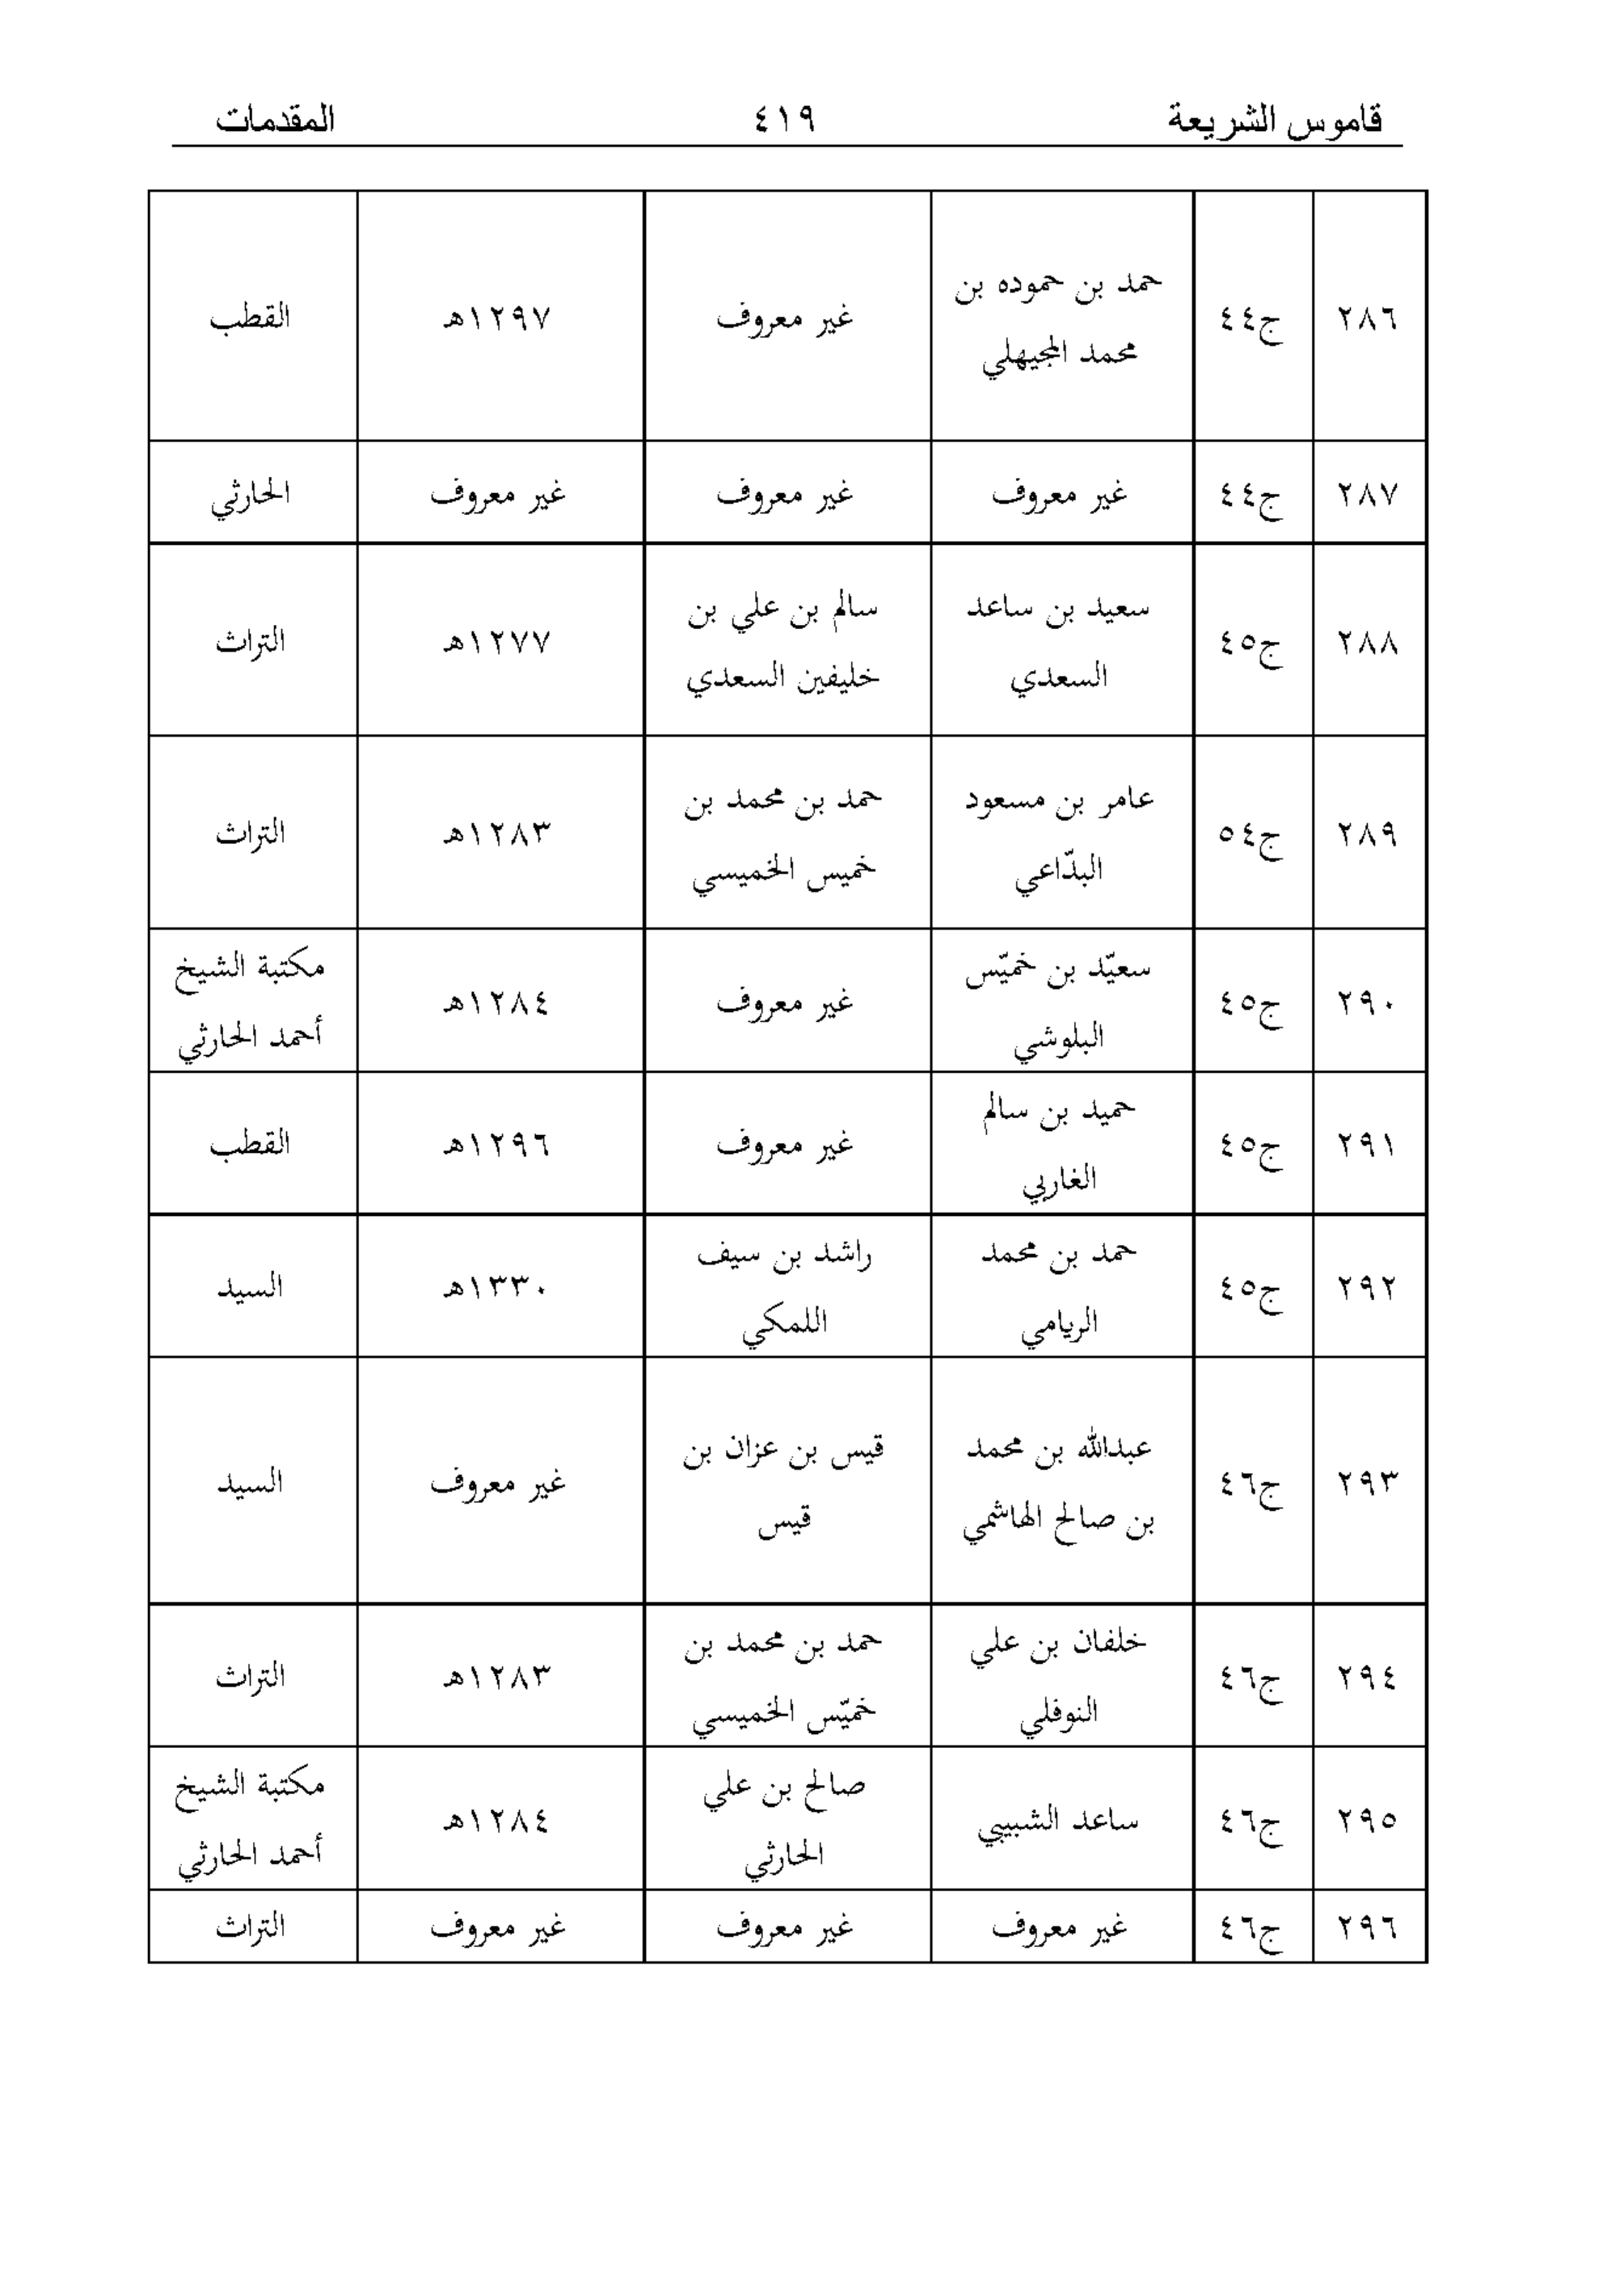 قاموس الشريعة ٤١٩ المقدمات
٢٨٦ ج٤٤ حمد بن حموده بن محمد المجيهلي غير معروف ١٢٩٧هـ القطب
٢٨٧ ج٤٤ غير معروف غير معروف غير معروف الحارثي
٢٨٨ ج٤٥ سعيد بن ساعد السعدي سالم بن علي بن خليفين السعدي ١٢٧٧هـ التراث
٢٨٩ ج٥٤ عامر بن مسعود البدّاعي حمد بن محمد بن خميس الخميسي ١٢٨٣هـ التراث
٢٩٠ ج٤٥ سعيّد بن خميّس البلوشي غير معروف ١٢٨٤هـ مكتبة الشيخ أحمد الحارثي
٢٩١ ج٤٥ حميد بن سالم الغاربي غير معروف ١٢٩٦هـ القطب
٢٩٢ ج٤٥ حمد بن محمد الريامي راشد بن سيف اللمكي ١٣٣٠هـ السيد
٢٩٣ ج٤٦ عبدالله بن محمد بن صالح الهاشمي قيس بن عزان بن قيس غير معروف السيد
٢٩٤ ج٤٦ خلفان بن علي النوفلي حمد بن محمد بن خميّس الخميسي ١٢٨٣هـ التراث
٢٩٥ ج٤٦ ساعد الشبيبي صالح بن علي الحارثي ١٢٨٤هـ مكتبة الشيخ أحمد الحارثي
٢٩٦ ج٤٦ غير معروف غير معروف غير معروف التراث